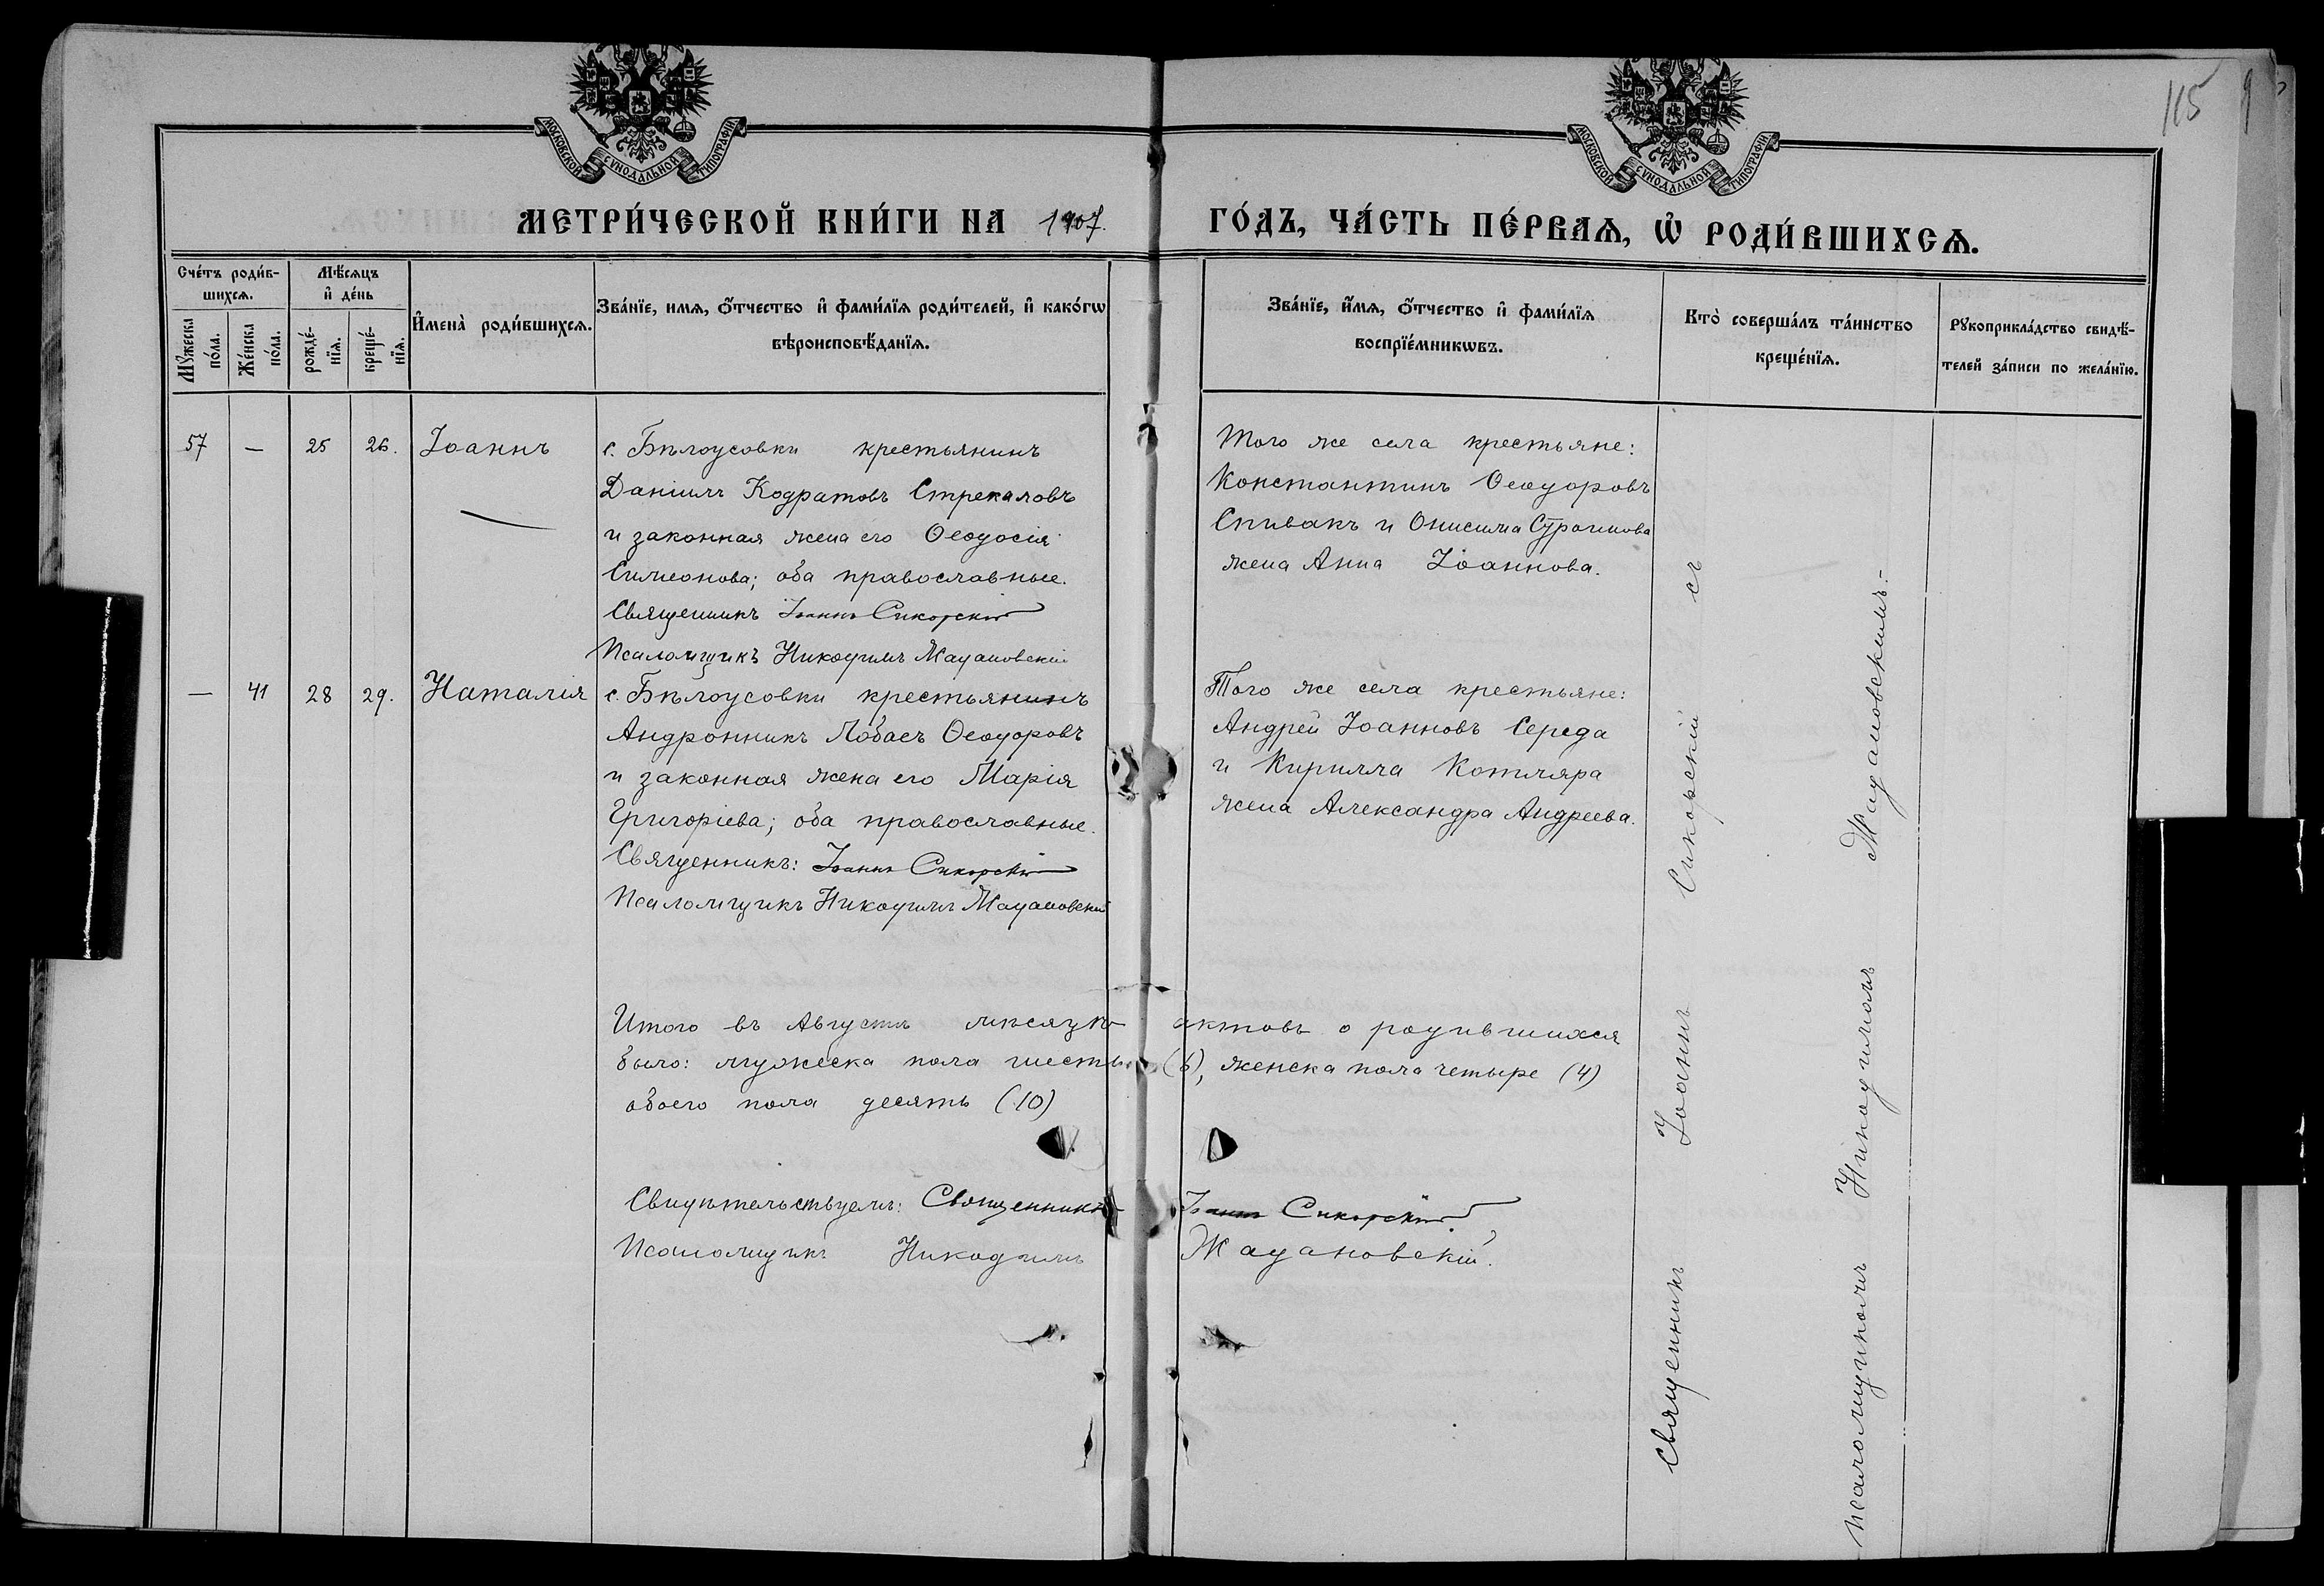 115
МОСКОВСКОЙ СѴНОДАЛЬНОЙ ТИПОГРАФІИ
МОСКОВСКОЙ СѴНОДАЛЬНОЙ ТИПОГРАФІИ
МЕТРИ́ЧЕСКОЙ КНИ́ГИ НА 1907. ГО́ДЪ, ЧА́СТЬ ПЕ́РВАѦ, Ѡ҆ РОДИ́ВШИХСѦ.
Сче́тъ роди́в-
шихсѧ.
Мꙋ́жеска по́ла.
Же́нска по́ла.
Мѣ́сяцъ
и҆ де́нь
рожде́-
нїѧ.
креще́-
нїѧ.
И҆мена̀ роди́вшихсѧ.
Зва́нїе, имѧ, ѻ҆́тчество и҆ фами́лїѧ роди́телей, и҆ како́гѡ
вѣроисповѣ́данїѧ.
Зва́нїе, и҆́мѧ, ѻ҆́тчество и҆ фами́лїѧ
воспрїе́мникѡвъ.
Кто̀ соверша́лъ та́инство
креще́нїѧ.
Рꙋкоприкла́дство свидѣ́-
телей за́писи по жела́нїю.
57 — 25 26. Іоаннъ
с. Бѣлоусовки крестьянинъ
Даніилъ Кодратовъ Стрекаловъ
и законная жена его Ѳеодосія
Симеонова; оба православные.
Священникъ Іоаннъ Сикорскій
Псаломщикъ Никодимъ Жадановскій
Того же села крестьяне:
Константинъ Ѳеодоровъ
Спивакъ и Онисима
жена Анна Іоаннова.
— 41 28 29. Наталія
с. Бѣлоусовки крестьянинъ
Андронникъ Лобасъ Ѳеодоровъ
и законная жена его Марія
Григоріева; оба православные.
Священникъ: Іоаннъ Сикорскій
Псаломщикъ Никодимъ Жадановскій
Того же села крестьяне:
Андрей Іоанновъ Середа
и Кирилла Котляра
жена Александра Андреева.
Священникъ Іоаннъ Сикорскій съ
псаломщикомъ Никодимомъ Жадановскимъ.-
Итого въ Августѣ мѣсяцѣ актовъ о родившихся
было: мужеска пола шесть (6), женска пола четыре (4)
обоего пола десять (10)
Свидѣтельствуемъ: Священникъ Іоаннъ Сикорскій.
Псаломщикъ Никодимъ Жадановскій.